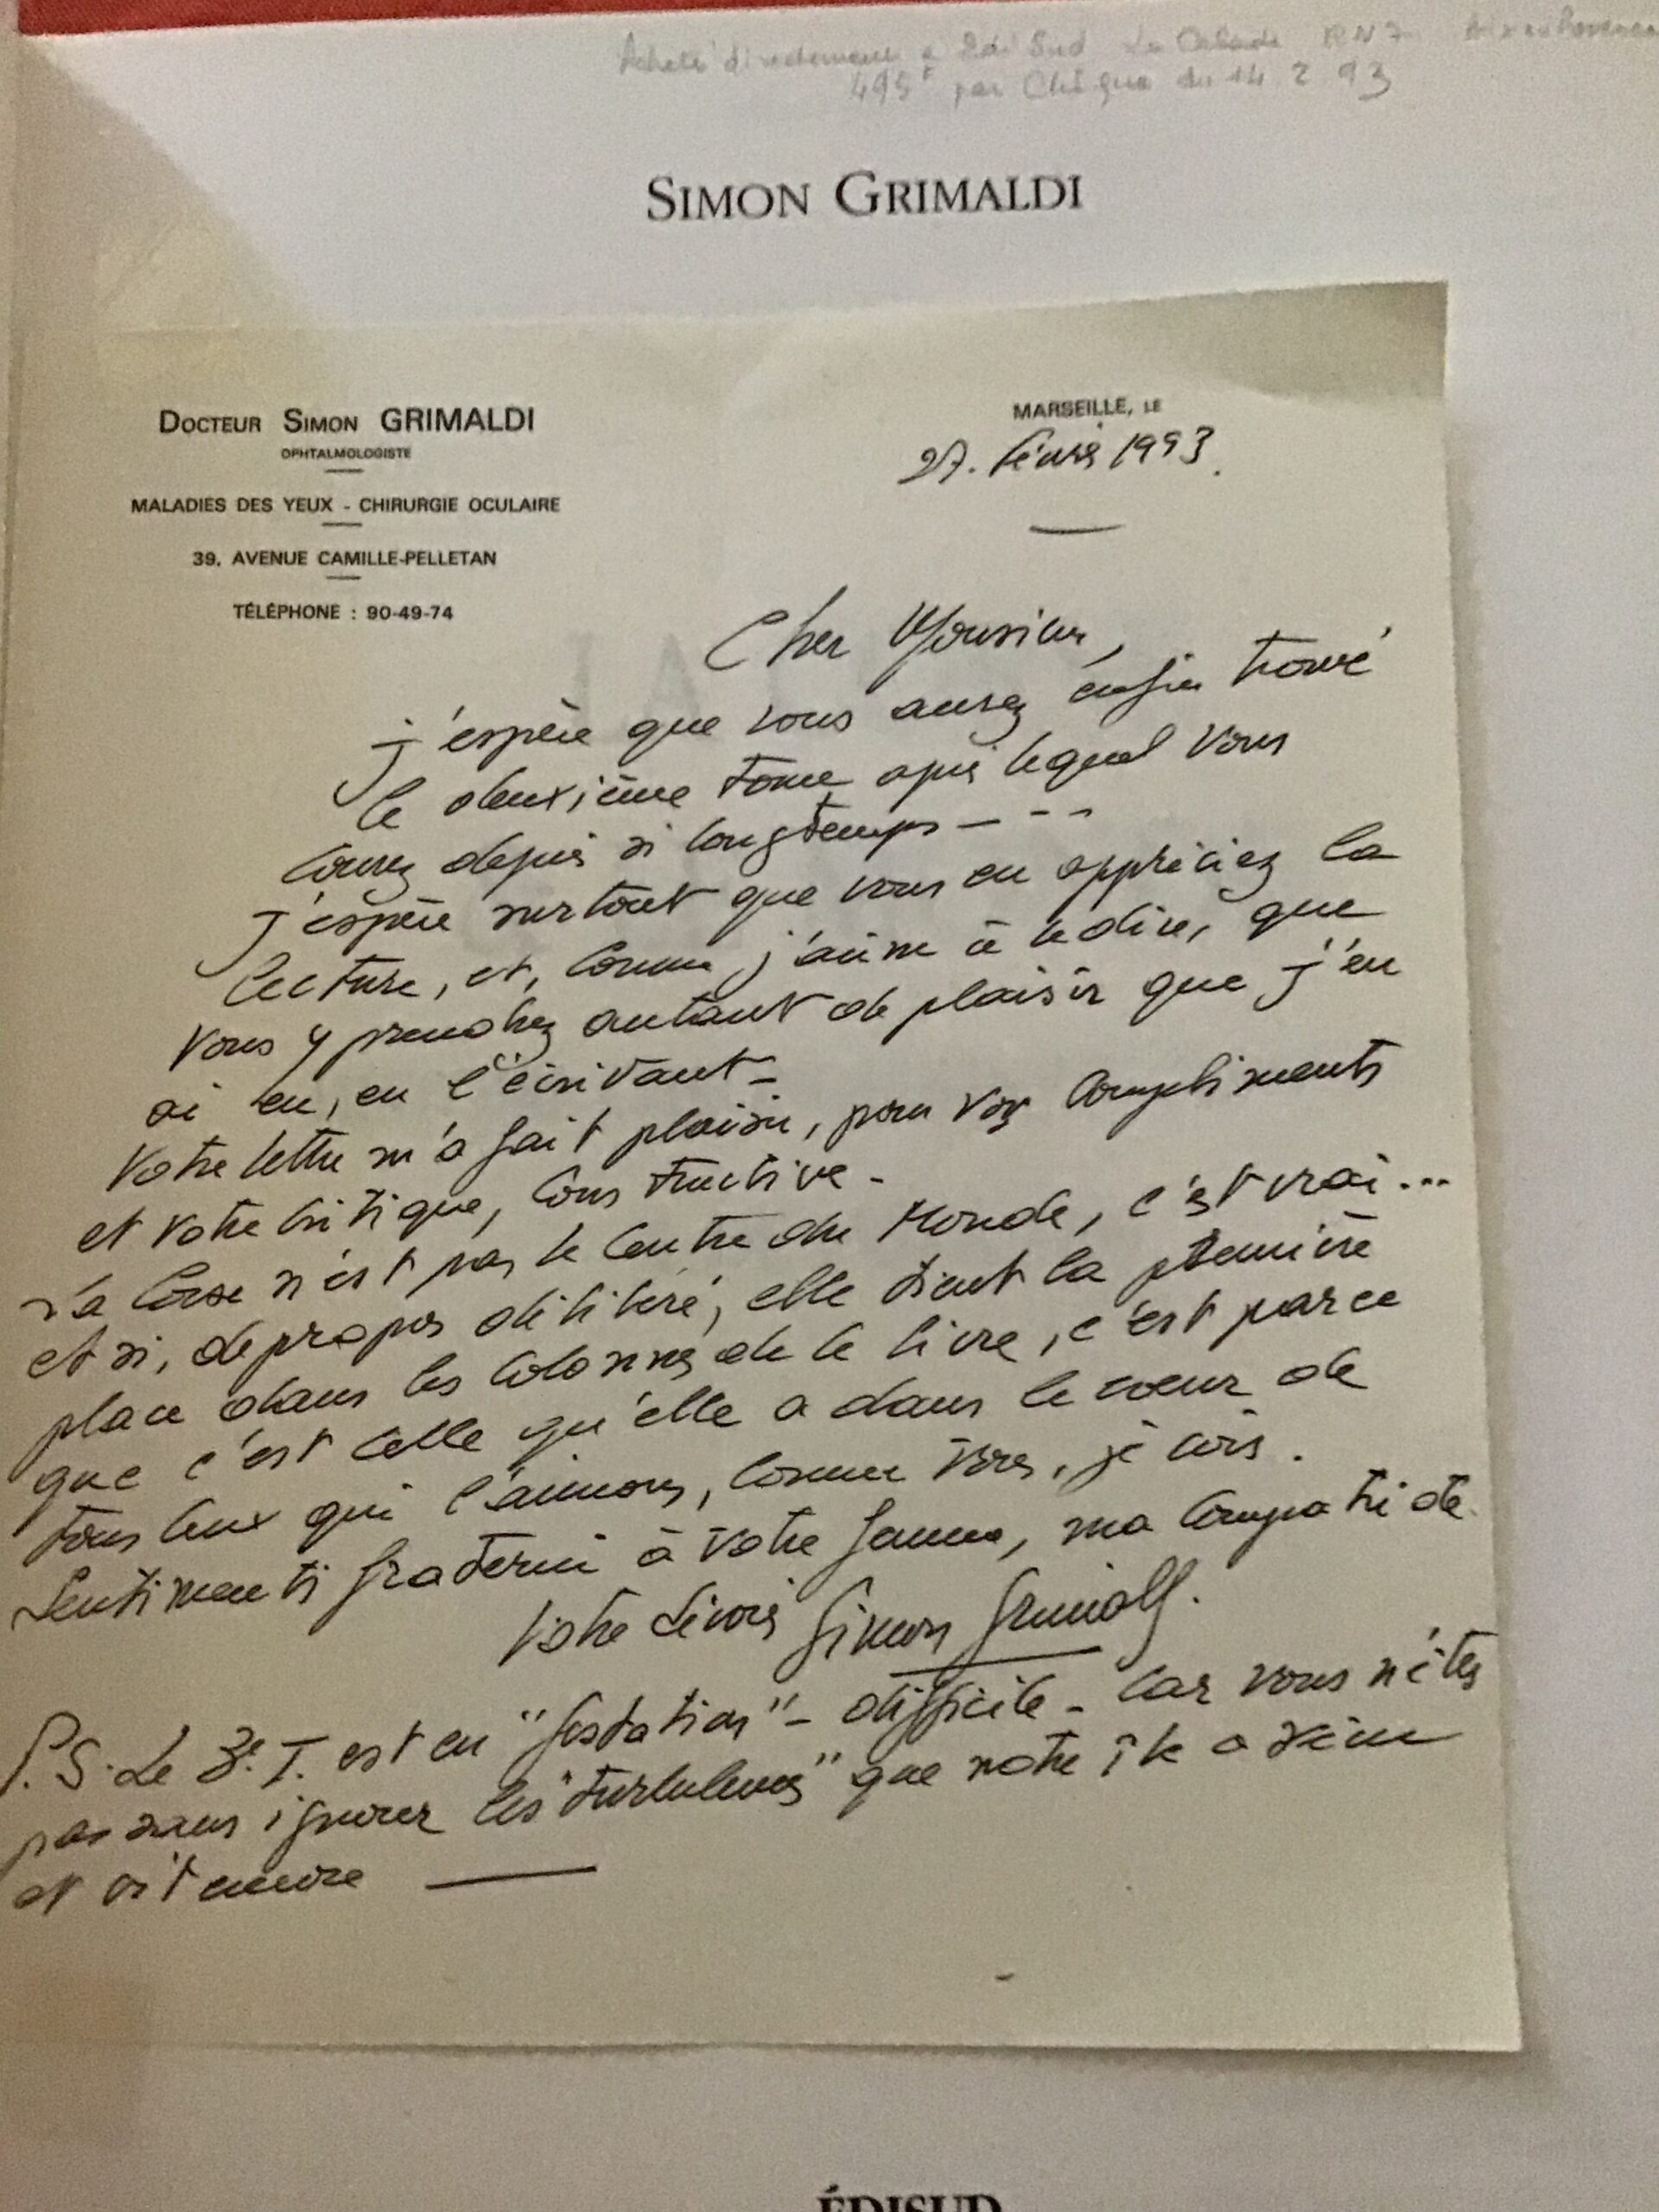 Acheté directement à Edisud La Calade RN7 Aix en Provence
495F par Chèque du 14 2 93
SIMON GRIMALDI
DOCTEUR SIMON GRIMALDI
OPHTALMOLOGISTE
MALADIES DES YEUX - CHIRURGIE OCULAIRE
39, AVENUE CAMILLE-PELLETAN
TÉLÉPHONE : 90-49-74
MARSEILLE, LE
27. février 1993.
Cher Monsieur,
j'espère que vous aurez enfin trouvé
le deuxième tome après lequel vous
courez depuis si longtemps - - -
J'espère surtout que vous en appréciez la
lecture, et, comme j'aime à le dire, que
vous y prendrez autant de plaisir que j'en
ai eu, en l'écrivant -
Votre lettre m'a fait plaisir, pour vos compliments
et votre critique, constructive -
La Corse n'est pas le centre du Monde, c'est vrai...
et si, de propos délibéré, elle tient la première
place dans les colonnes de ce livre, c'est parce
que c'est celle qu'elle a dans le cœur de
tous ceux qui l'aimons, comme vous, je crois.
Sentimenti fraterni à votre femme, ma compatriote.
Votre dévoué Simon Grimaldi.
P.S. Le 3e. T. est en "gestation" - difficile - car vous n'êtes
pas sans ignorer les "turbulences" que notre île a
et vit encore
ÉDISUD